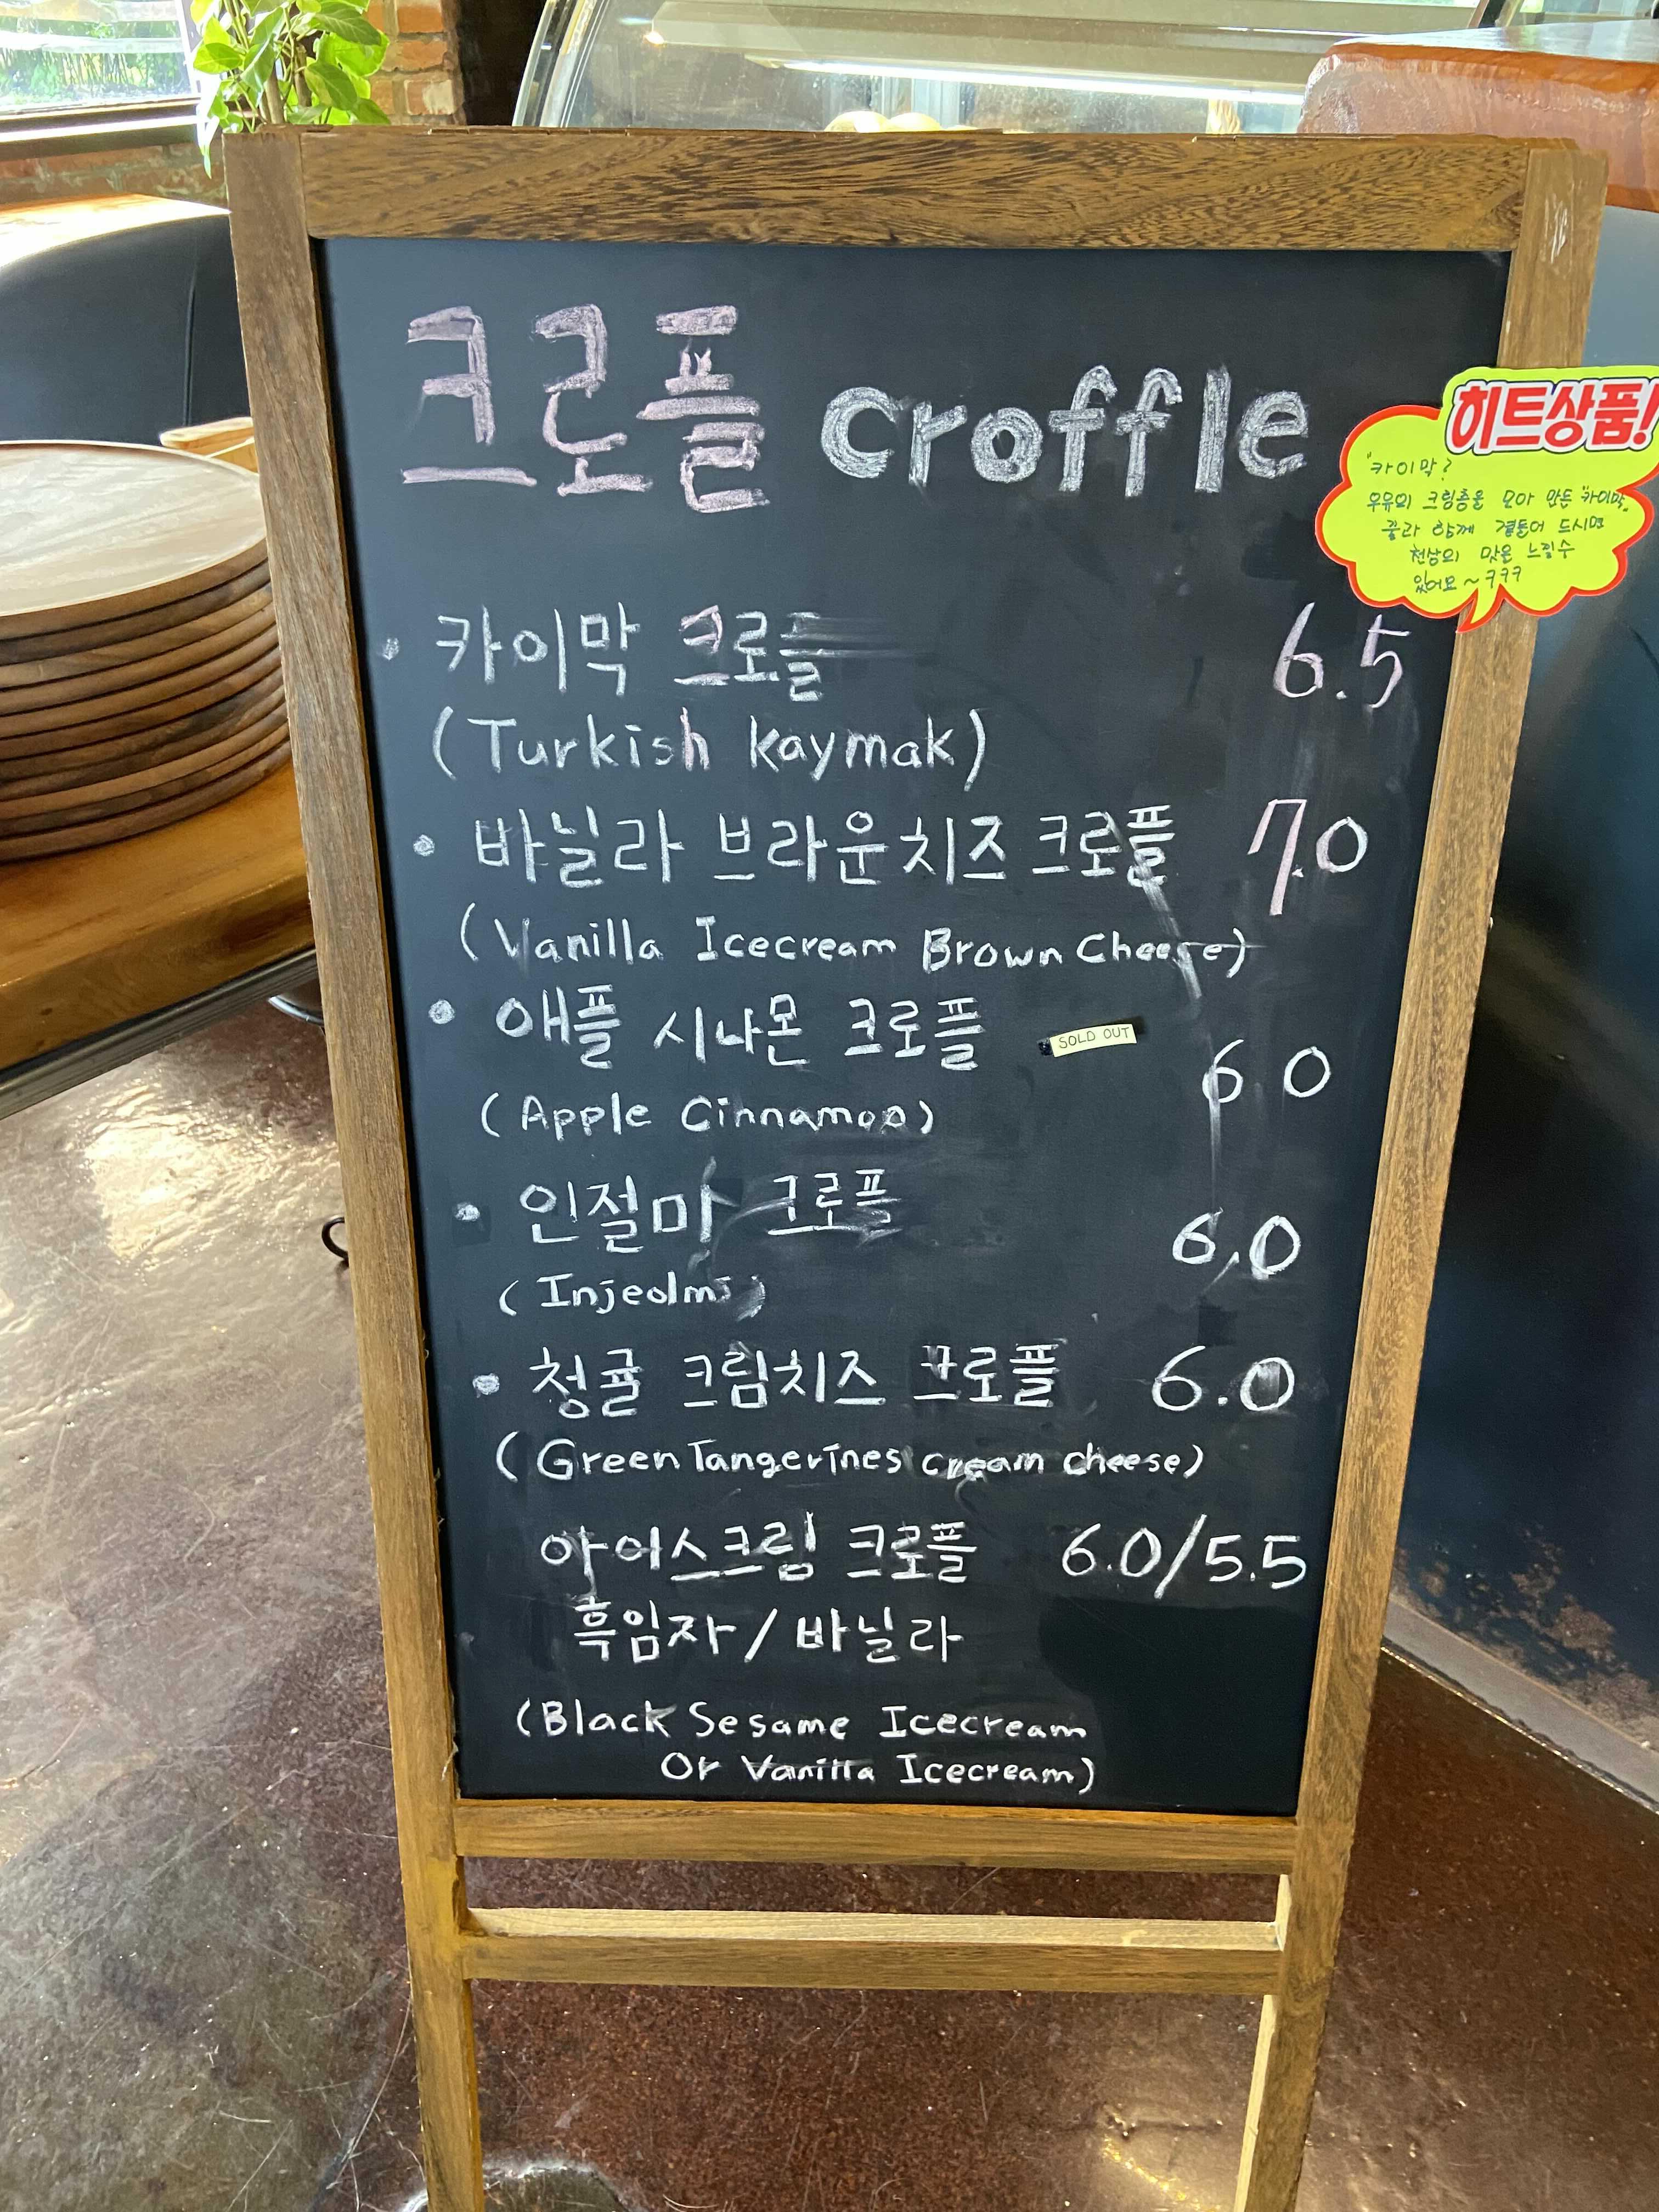 크로플 croffle
히트상품!
"카이막?
우유의 크림층을 모아 만든 "카이막"
꿀과 함께 곁들여 드시면
천상의 맛을 느낄수
있어요~ ㅋㅋㅋ
• 카이막 크로플 6.5
(Turkish kaymak)
• 바닐라 브라운치즈 크로플 7.0
(Vanilla Icecream Brown Cheese)
• 애플 시나몬 크로플 SOLD OUT 6 0
(Apple Cinnamon)
• 인절미 크로플 6,0
(Injeolmi)
• 청귤 크림치즈 크로플 6.0
(Green Tangerines cream cheese)
아이스크림 크로플 6.0/5.5
흑임자/바닐라
(Black Sesame Icecream
Or Vanilla Icecream)